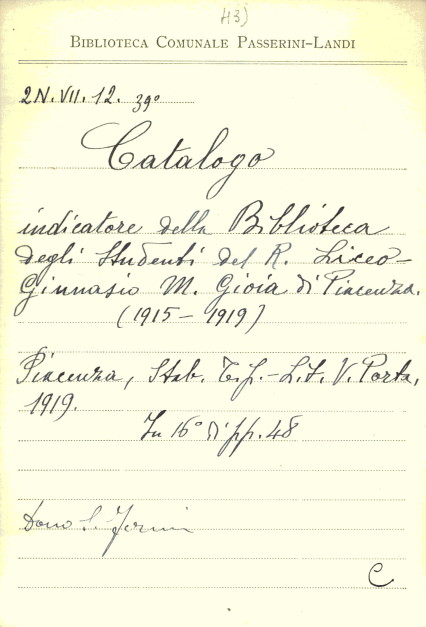 43)
BIBLIOTECA COMUNALE PASSERINI-LANDI
2N.VII.12. 39º
Catalogo
indicatore della Biblioteca
degli Studenti del R. Liceo-
Ginnasio M. Gioia di Piacenza.
(1915-1919)
Piacenza, Stab. Tip.-Lit. V. Porta,
1919.
In 16º di pp. 48
Dono S.
C